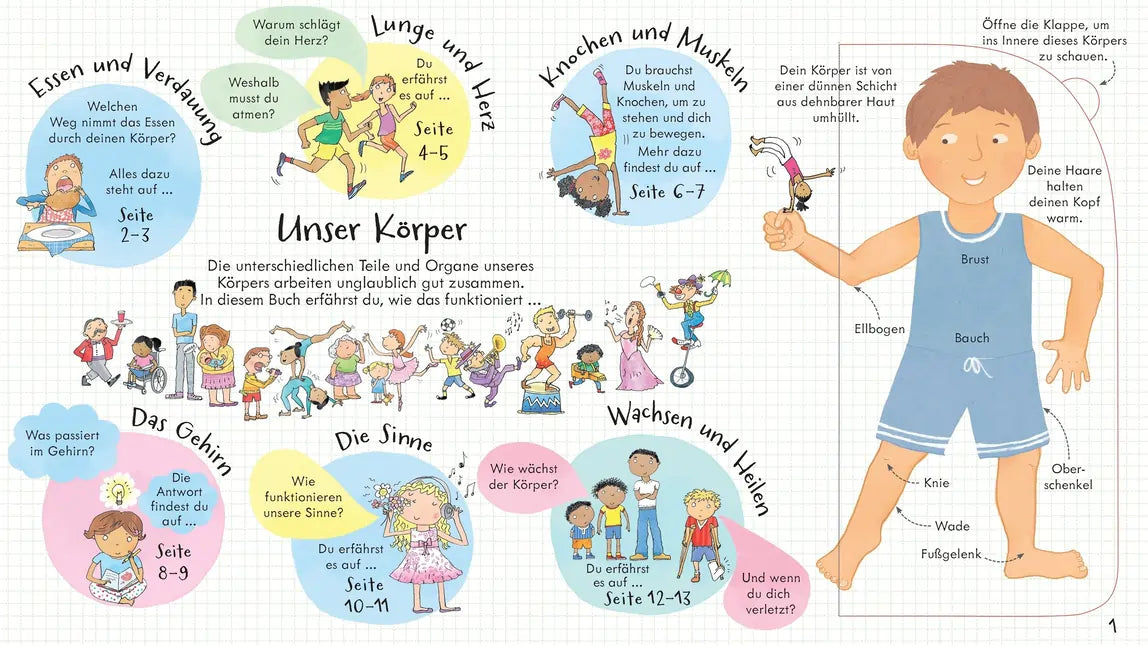 Essen und Verdauung
Welchen
Weg nimmt das Essen
durch deinen Körper?
Alles dazu
steht auf ...
Seite
2–3
Lunge und Herz
Warum schlägt
dein Herz?
Weshalb
musst du
atmen?
Du
erfährst
es auf ...
Seite
4–5
Knochen und Muskeln
Du brauchst
Muskeln und
Knochen, um zu
stehen und dich
zu bewegen.
Mehr dazu
findest du auf ...
Seite 6–7
Unser Körper
Die unterschiedlichen Teile und Organe unseres
Körpers arbeiten unglaublich gut zusammen.
In diesem Buch erfährst du, wie das funktioniert ...
Das Gehirn
Was passiert
im Gehirn?
Die
Antwort
findest du
auf ...
Seite
8–9
Die Sinne
Wie
funktionieren
unsere Sinne?
Du erfährst
es auf ...
Seite
10–11
Wachsen und Heilen
Wie wächst
der Körper?
Du erfährst
es auf ...
Seite 12–13
Und wenn
du dich
verletzt?
Öffne die Klappe, um
ins Innere dieses Körpers
zu schauen.
Dein Körper ist von
einer dünnen Schicht
aus dehnbarer Haut
umhüllt.
Deine Haare
halten
deinen Kopf
warm.
Brust
Ellbogen
Bauch
Ober-
schenkel
Knie
Wade
Fußgelenk
1